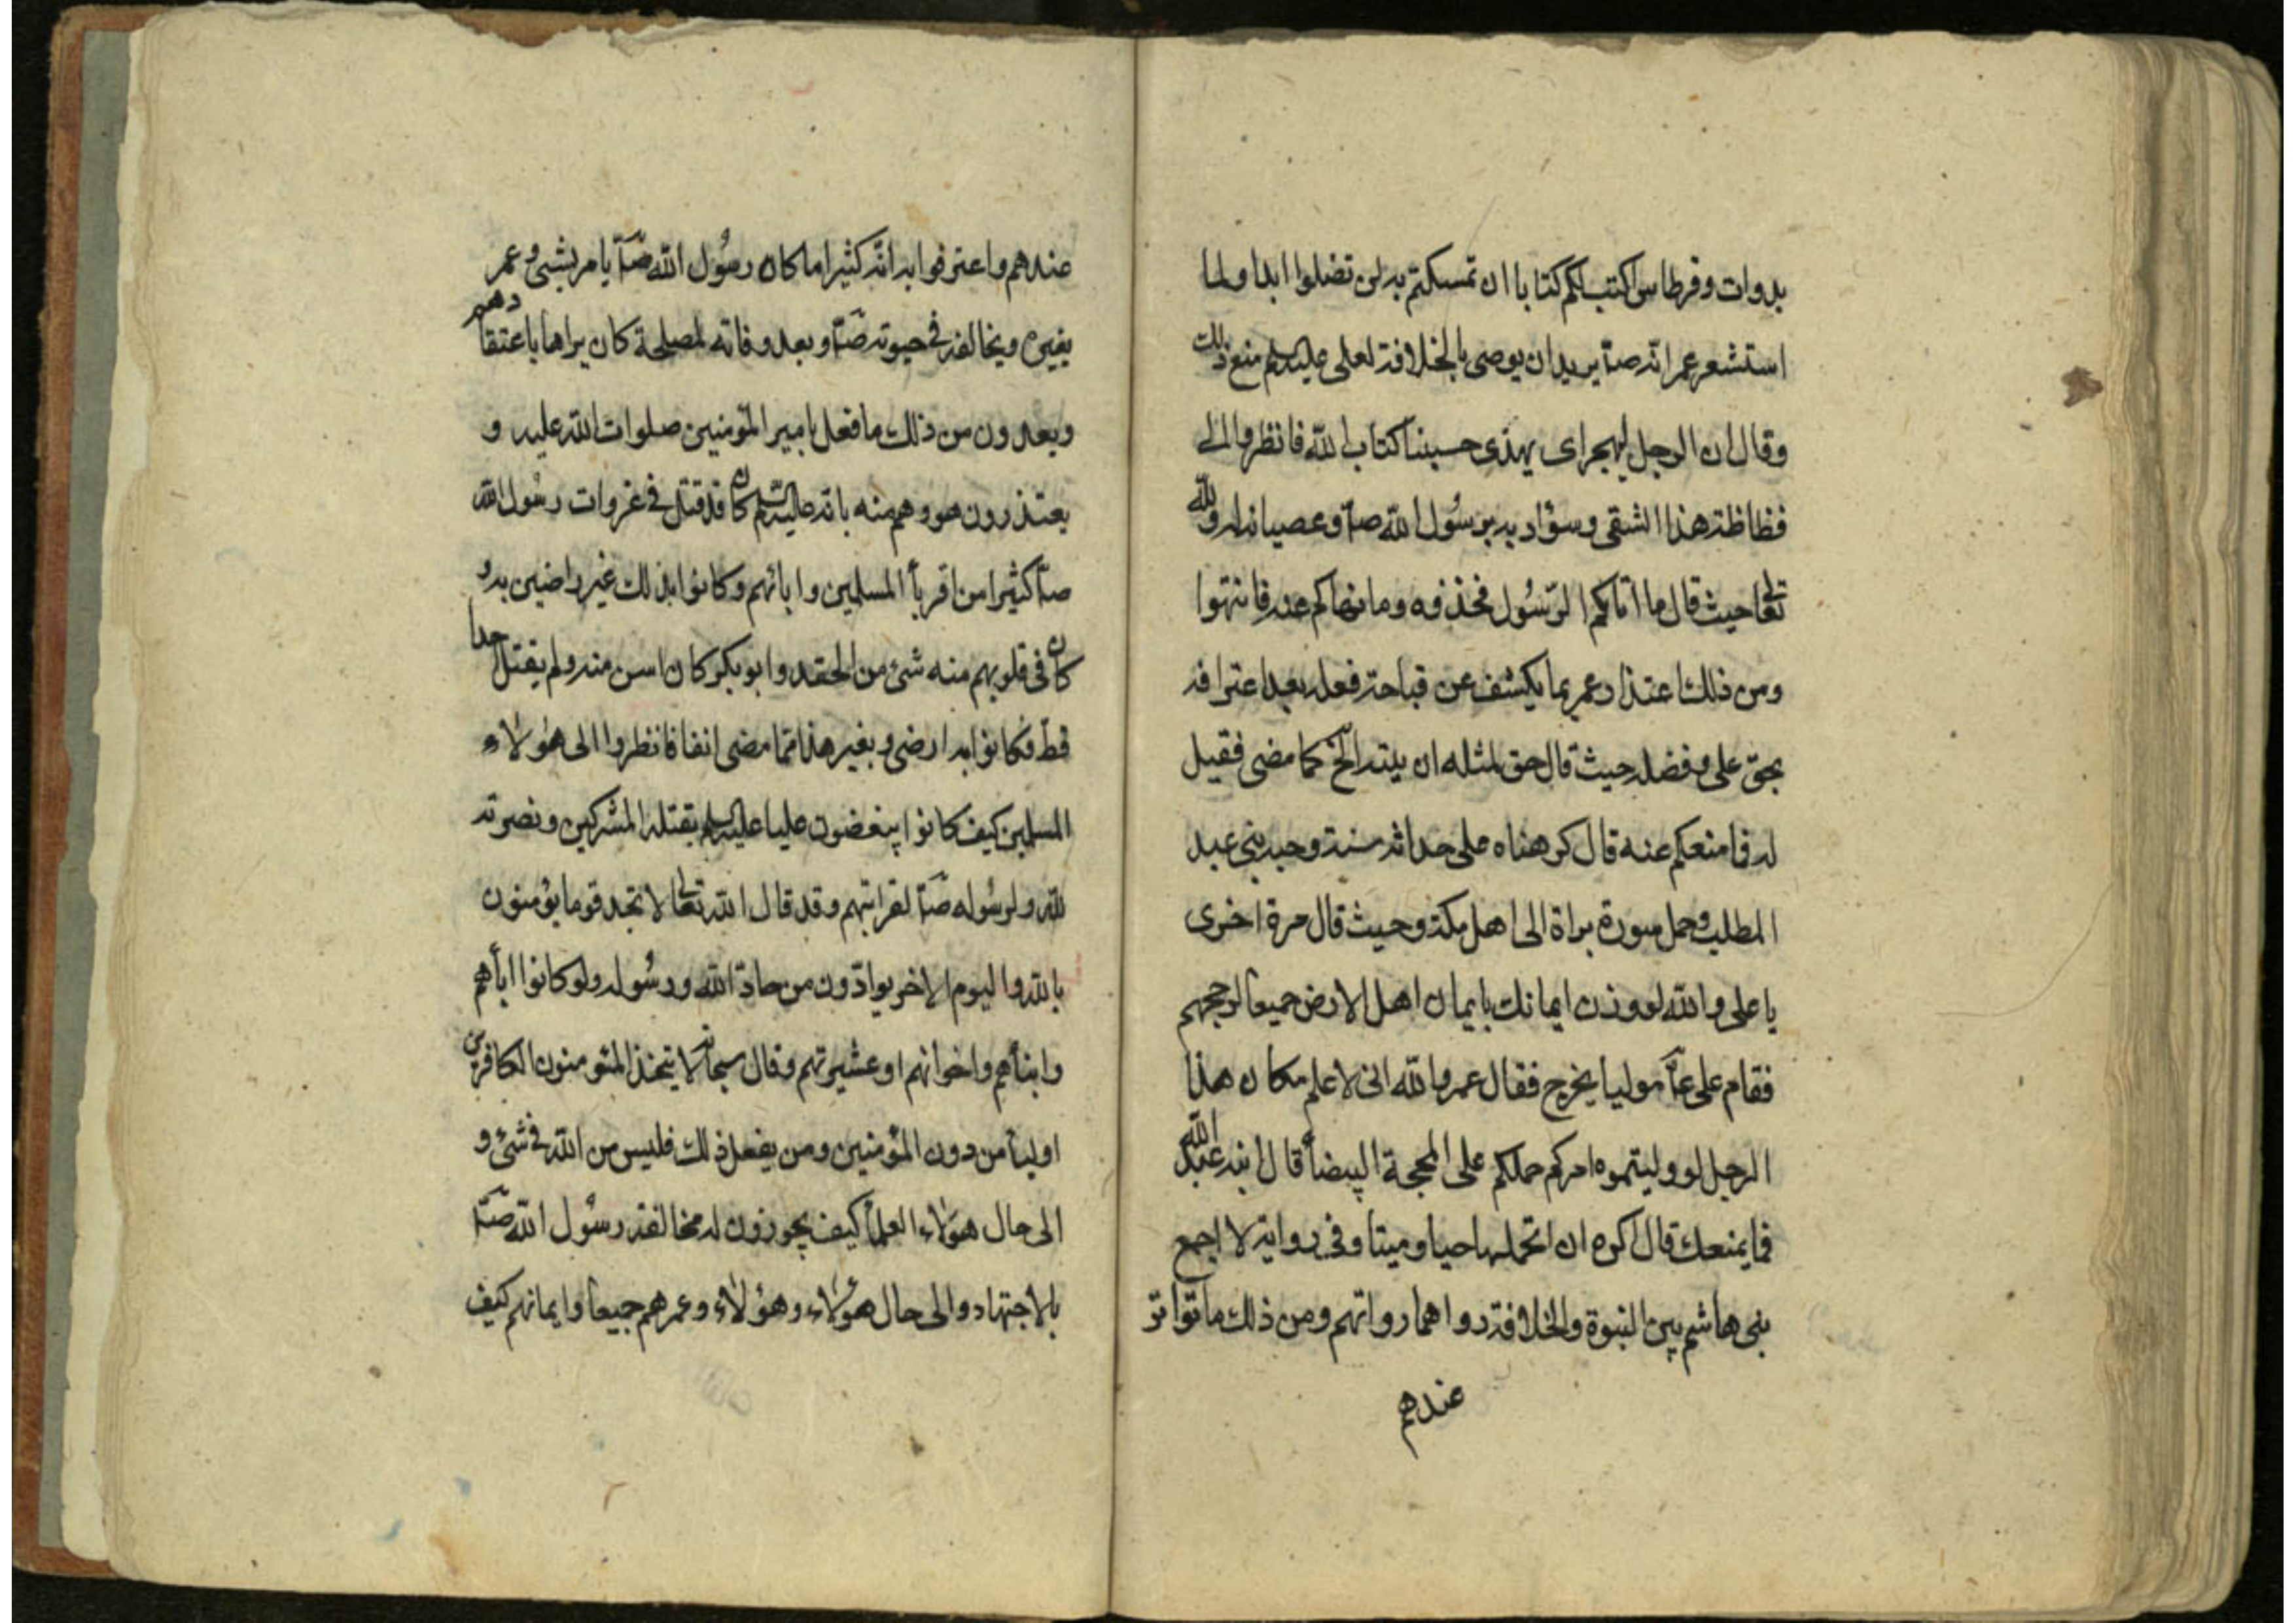 بدوات وقرطاس اكتب لكم كتابا ان تمسكتم به لن تضلوا ابدا ولما
استشعر عمر انه صآ يريد ان يوصى بالخلافة لعلى عليه السلم منع ذلك
وقال ان الرجل ليهجر اى يهذى حسبنا كتاب الله فانظروا الى
فظاظة هذا الشقى وسؤاد به برسُول الله صآ وعصيانه له ولله
تعالى حيث قال ما اتاكم الرّسُول فخذوه وما نهاكم عنه فانتهوا
ومن ذلك اعتذار عمر بما يكشف عن قباحة فعله بعد اعترافه
بحق على وفضله حيث قال حق لمثله ان يتيه الخ كما مضى فقيل
له فما منعكم عنه قال كرهناه على حداثة سنه وحبه بنى عبد
المطلب وحمل سورة براة الى اهل مكة وحيث قال مرة اخرى
يا على والله لو وزن ايمانك بايمان اهل الارض جميعا لرجحهم
فقام على عآ موليا يخرج فقال عمر والله انى لاعلم مكان هذا
الرجل لو وليتموه امركم حملكم على المحجة البيضأ قال ابنه عبد الله
فما يمنعك قال اكره ان اتحملها حيا وميتا وفى رواية لا اجمع
بنى هاشم بين النبوة والخلافة رواهما رواتهم ومن ذلك ما تواتر
عندهم
عندهم واعترفوا به انه كثيرا ما كان رسُول الله صآ يامر بشئ وعمر
يغيره ويخالفه فى حيوته صآ وبعد وفاته لمصلحة كان يراها باعتقادهم
ويعدون من ذلك ما فعل بامير المؤمنين صلوات الله عليه و
يعتذرون هو وهم منه بانه عليه السلم كان قد قتل فى غزوات رسُول الله
صآ كثيرا من اقربأ المسلمين وابائهم وكانوا بذلك غير راضين به و
كان فى قلوبهم منه شئ من الحقد وابو بكر كان اسن منه ولم يقتل احدا
قط فكانوا به ارضى وبغير هذا مما مضى انفا فانظروا الى هؤلاء
المسلمين كيف كانوا يبغضون عليا عليه السلم بقتله المشركين ونصرته
لله ولرسُوله صآ لقرابتهم وقد قال الله تعالى لا تجد قوما يؤمنون
بالله واليوم الاخر يوادّون من حادّ الله ورسُوله ولو كانوا ابأهم
وابنأهم واخوانهم او عشيرتهم وقال سبحانه لا يتخذ المئومنون الكافرين
اوليأ من دون المؤمنين ومن يفعل ذلك فليس من الله فى شئ و
الى حال هؤلاء العلمأ كيف يجوزون له مخالفة رسُول الله صآ
بالاجتهاد والى حال هؤلاء وهؤلاء وعمرهم جميعا وايمانهم كيف